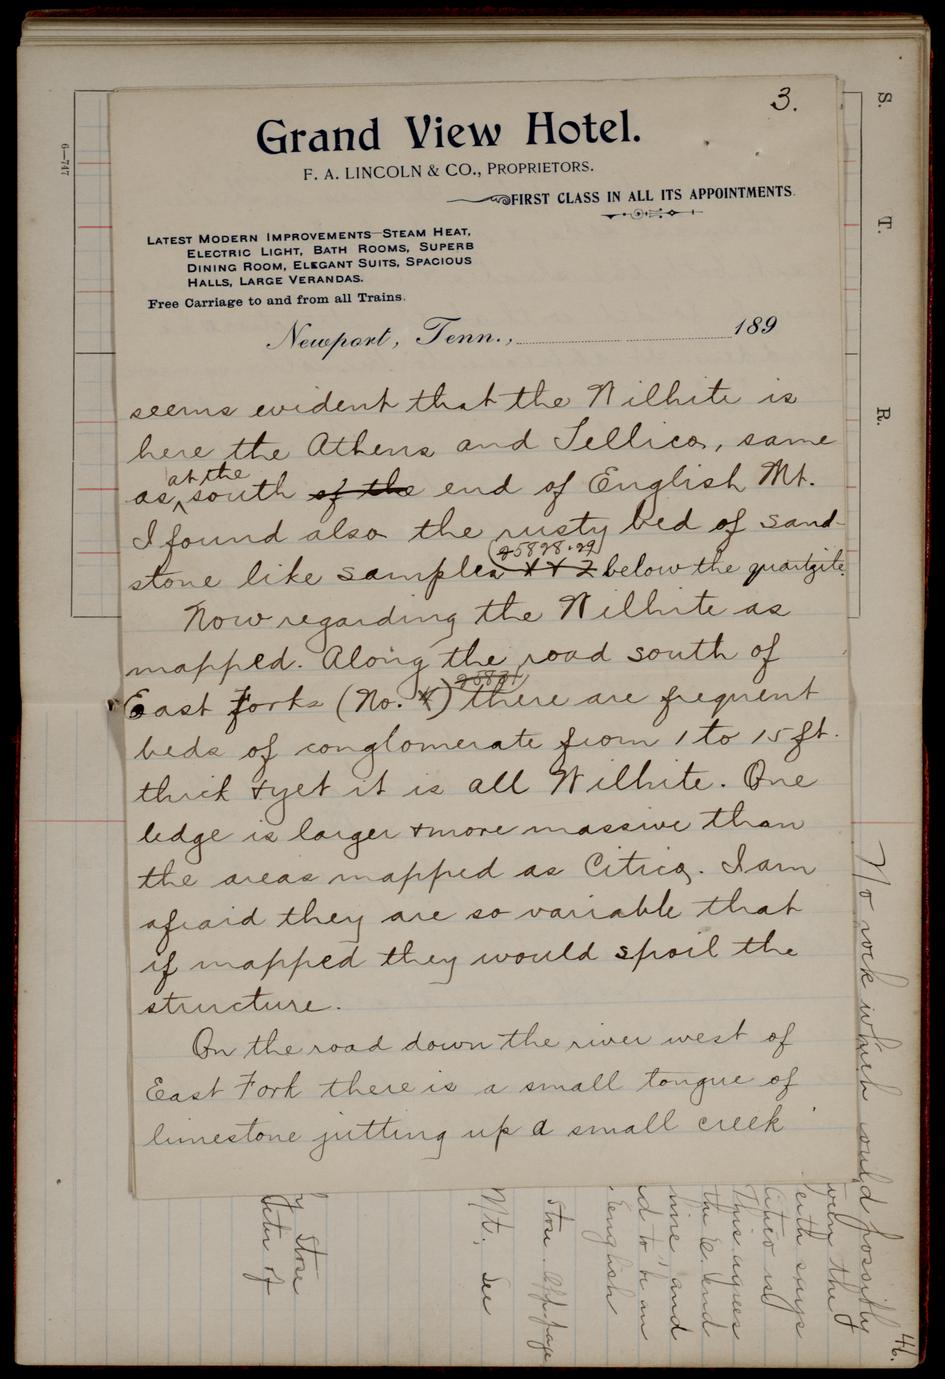 3.
Grand View Hotel.
F. A. LINCOLN & CO., PROPRIETORS.
FIRST CLASS IN ALL ITS APPOINTMENTS.
LATEST MODERN IMPROVEMENTS—STEAM HEAT,
ELECTRIC LIGHT, BATH ROOMS, SUPERB
DINING ROOM, ELEGANT SUITS, SPACIOUS
HALLS, LARGE VERANDAS.
Free Carriage to and from all Trains.
Newport, Tenn., 189
seems evident that the Wilhite is
here the Athens and Tellico, same
at the
as south of the end of English Mt.
I found also the rusty bed of sand-
(25828.29)
stone like samples below the quartzite.
Now regarding the Wilhite as
mapped. Along the road south of
25831
East Fork (No. ) there are frequent
beds of conglomerate from 1 to 15 ft.
thick & yet it is all Wilhite. One
ledge is larger & more massive than
the areas mapped as Citico. I am
afraid they are so variable that
if mapped they would spoil the
structure.
On the road down the river west of
East Fork there is a small tongue of
limestone jutting up a small creek
S. T. R.
6—747
46.
No rock which could possibly
with the
Keith says
Citico is
This agrees
the E. end
mine, and
d to be an
English
Stose. Opp. page
Mt. See
Stose